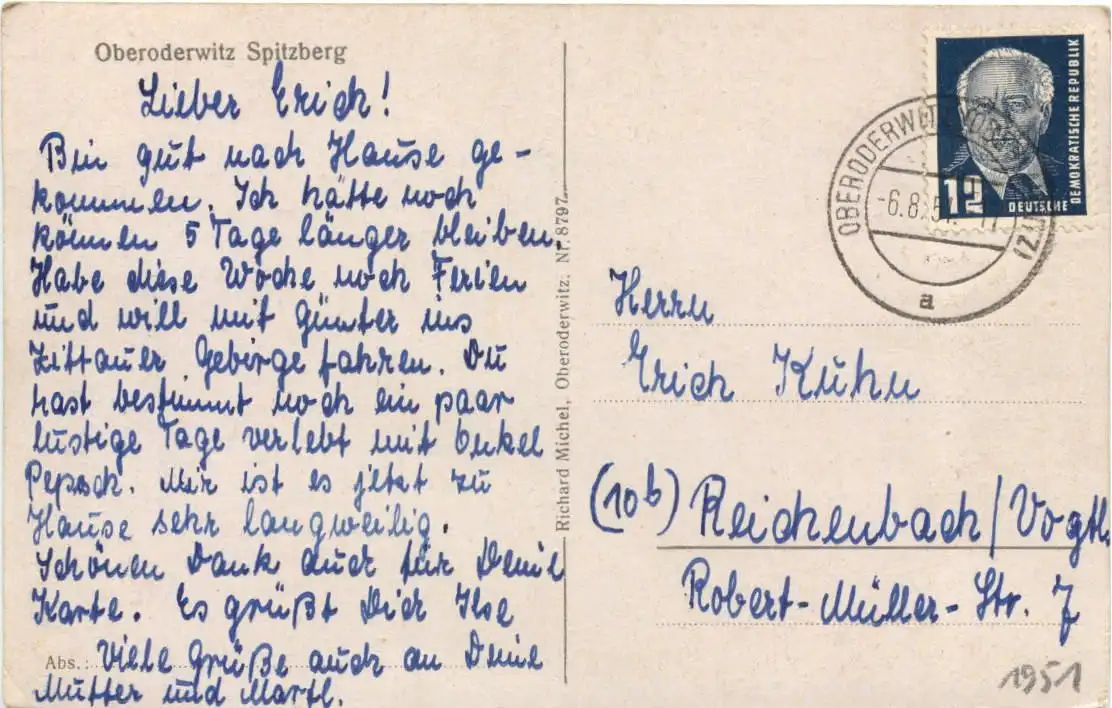 Oberoderwitz Spitzberg
Lieber Erich!
Bin gut nach Hause ge-
kommen. Ich hätte noch
können 5 Tage länger bleiben.
Habe diese Woche noch Ferien
und will mit Günter ins
Zittauer Gebirge fahren. Du
hast bestimmt noch ein paar
lustige Tage verlebt mit Onkel
Pepsch. Mir ist es jetzt zu
Hause sehr langweilig.
Schönen Dank auch für Deine
Karte. Es grüßt Dich Ilse
Abs.: Viele Grüße auch an Deine
Mutter und Martl.
Richard Michel, Oberoderwitz. Nr. 8797.
DEUTSCHE DEMOKRATISCHE REPUBLIK
12
OBERODERWITZ
-6.8.51.
a
Herrn
Erich Kuhn
(10b) Reichenbach/Vogtl.
Robert-Müller-Str. 7
1951